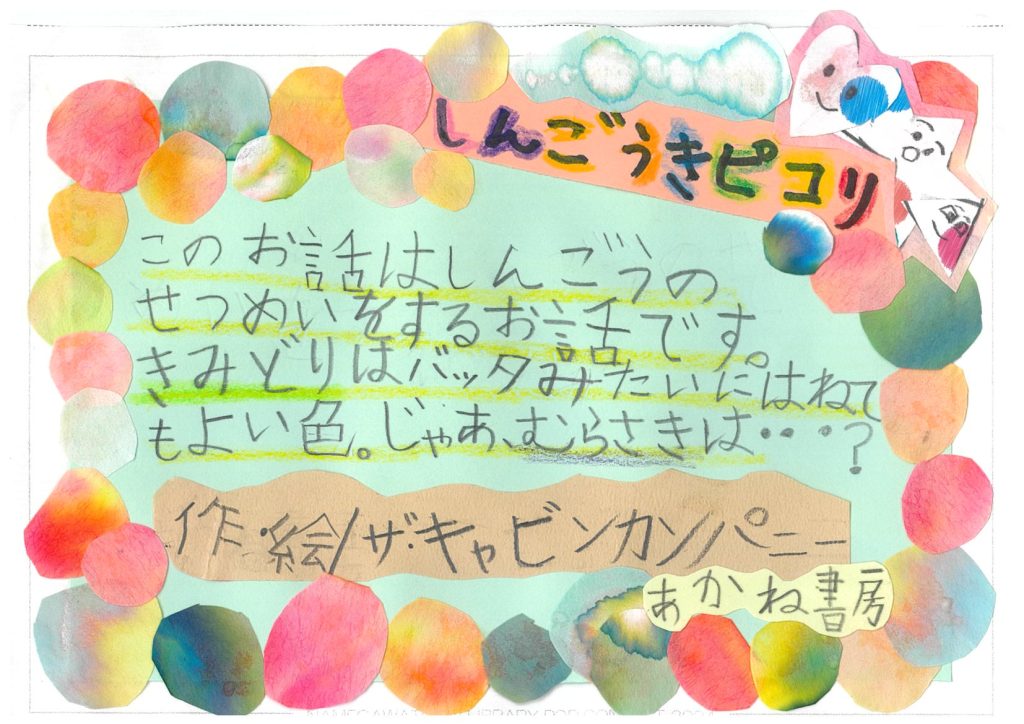 しんごうきピコリ
このお話はしんごうの
せつめいをするお話です。
きみどりはバッタみたいにはねて
もよい色。じゃあ、むらさきは・・・・?
作・絵/ザ・キャビンカンパニー
あかね書房